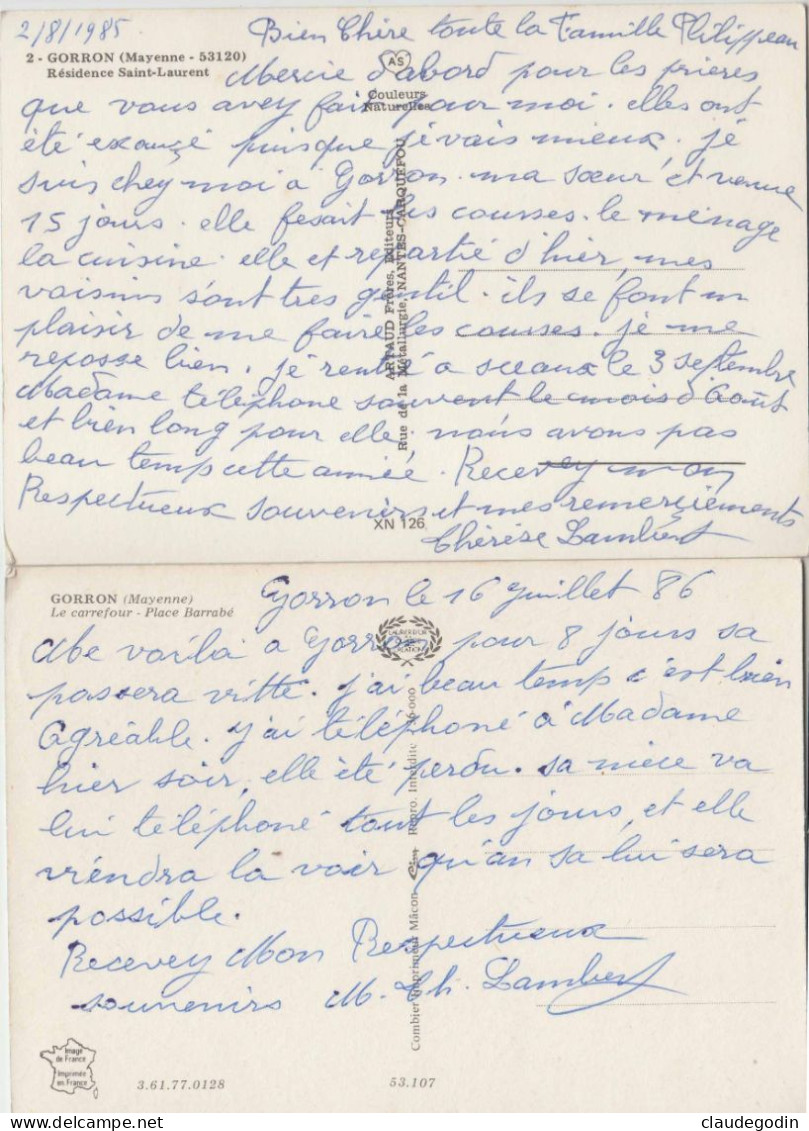 2/8/1985
Bien Chère toute la Famille Philippeau
2 - GORRON (Mayenne - 53120)
Résidence Saint-Laurent
AS
Couleurs
Naturelles
Mercie d'abord pour les prières
que vous avez fait pour moi. elles ont
été exaucé puisque je vais mieux. je
suis chez moi à Gorron. ma sœur et venue
15 jours. elle fesait les courses. le ménage
la cuisine. elle et repartie d'hier, mes
voisins sont tres gentil. ils se font un
plaisir de me faire les courses. je me
repose bien. je rentre a sceaux le 3 septembre
Madame téléphone souvent le mois d'Août
et bien long pour elle. nous avons pas
beau temps cette année. Recevez mon
Respectueux souvenirs et mes remerçiements
Thérèse Lambert
ARTAUD Frères, Éditeurs
Rue de la Métallurgie, NANTES-CARQUEFOU
XN 126
GORRON (Mayenne)
Le carrefour - Place Barrabé
Gorron le 16 juillet 86
Me voila a Gorron pour 8 jours sa
passera vitte. j'ai beau temp c'est bien
Agréable. j'ai téléphoné à Madame
hier soir, elle été perdu. sa niece va
lui téléphoné tout les jours, et elle
viendra la voir qu'an sa lui sera
possible.
Recevez Mon Respectueux
souvenirs M. Th. Lambert
Combier Imprimeur Mâcon Cim Repro. Interdite
Image
de France
Imprimée
en France
3.61.77.0128
53.107
www.delcampe.net
claudegodin